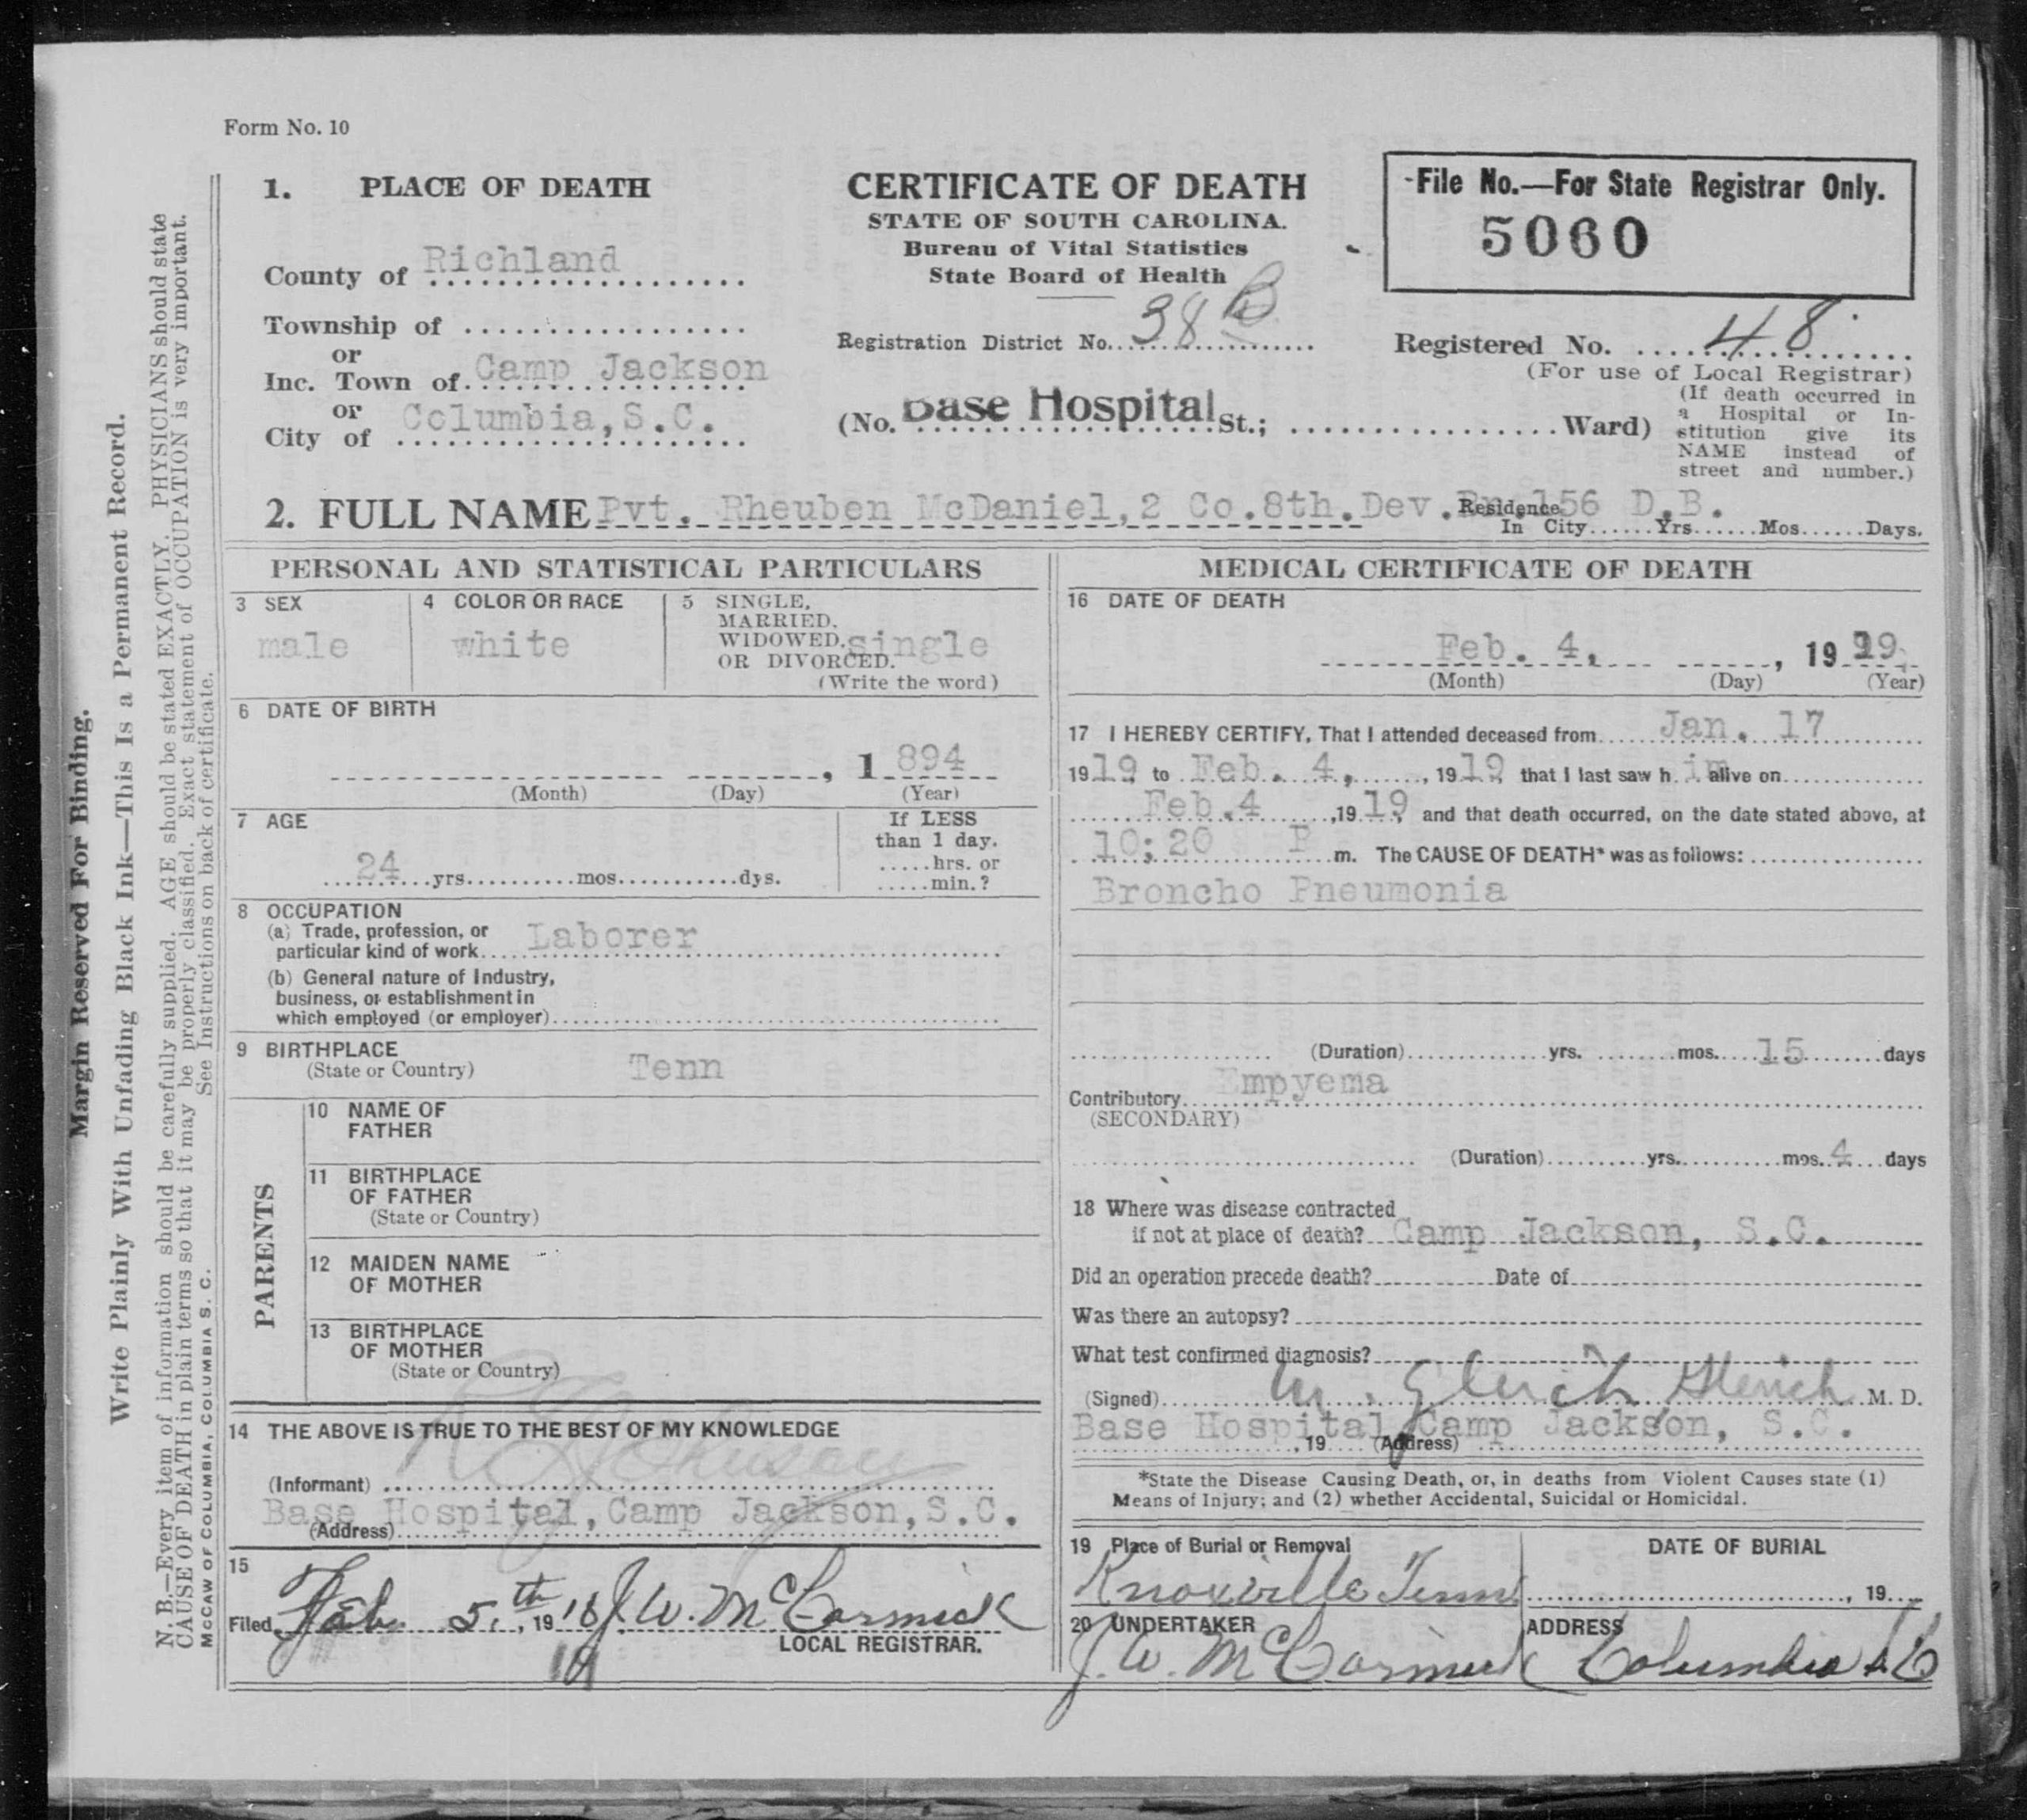 Form No. 10
1. PLACE OF DEATH
County of Richland
Township of
or
Inc. Town of Camp Jackson
or
City of Columbia, S.C.
CERTIFICATE OF DEATH
STATE OF SOUTH CAROLINA.
Bureau of Vital Statistics
State Board of Health
Registration District No. 38 B
(No. Base Hospital St.; Ward)
File No.—For State Registrar Only.
5060
Registered No. 48
(For use of Local Registrar)
(If death occurred in
a Hospital or In-
stitution give its
NAME instead of
street and number.)
2. FULL NAME Pvt. Rheuben McDaniel, 2 Co. 8th. Dev. Bn. 156 D.B.
Residence
In City Yrs Mos Days.
PERSONAL AND STATISTICAL PARTICULARS
3 SEX
male
4 COLOR OR RACE
white
5 SINGLE,
MARRIED,
WIDOWED,
OR DIVORCED. single
(Write the word)
6 DATE OF BIRTH
, 1 894
(Month) (Day) (Year)
7 AGE
24 yrs. mos. dys.
If LESS
than 1 day.
hrs. or
min.?
8 OCCUPATION
(a) Trade, profession, or
particular kind of work Laborer
(b) General nature of Industry,
business, or establishment in
which employed (or employer)
9 BIRTHPLACE
(State or Country) Tenn
PARENTS
10 NAME OF
FATHER
11 BIRTHPLACE
OF FATHER
(State or Country)
12 MAIDEN NAME
OF MOTHER
13 BIRTHPLACE
OF MOTHER
(State or Country)
14 THE ABOVE IS TRUE TO THE BEST OF MY KNOWLEDGE
(Informant)
Base Hospital, Camp Jackson, S.C.
(Address)
15
Filed Feb 5th, 19 18 J. W. McCormick
19
LOCAL REGISTRAR.
MEDICAL CERTIFICATE OF DEATH
16 DATE OF DEATH
Feb. 4, , 19 19
(Month) (Day) (Year)
17 I HEREBY CERTIFY, That I attended deceased from Jan. 17
1919 to Feb. 4, , 1919 that I last saw h im alive on
Feb. 4 , 1919 and that death occurred, on the date stated above, at
10:20 P m. The CAUSE OF DEATH* was as follows:
Broncho Pneumonia
(Duration) yrs. mos. 15 days
Contributory Empyema
(SECONDARY)
(Duration) yrs. mos. 4 days
18 Where was disease contracted
if not at place of death? Camp Jackson, S.C.
Did an operation precede death? Date of
Was there an autopsy?
What test confirmed diagnosis?
(Signed) M. D.
Base Hospital Camp Jackson, S.C.
, 19 (Address)
*State the Disease Causing Death, or, in deaths from Violent Causes state (1)
Means of Injury; and (2) whether Accidental, Suicidal or Homicidal.
19 Place of Burial or Removal
Knoxville Tenn
DATE OF BURIAL
, 19
20 UNDERTAKER
J. W. McCormick
ADDRESS
Columbia S C
Margin Reserved For Binding.
Write Plainly With Unfading Black Ink—This Is a Permanent Record.
N. B.—Every item of information should be carefully supplied. AGE should be stated EXACTLY. PHYSICIANS should state
CAUSE OF DEATH in plain terms so that it may be properly classified. Exact statement of OCCUPATION is very important.
See Instructions on back of certificate.
McCAW OF COLUMBIA, COLUMBIA S. C.